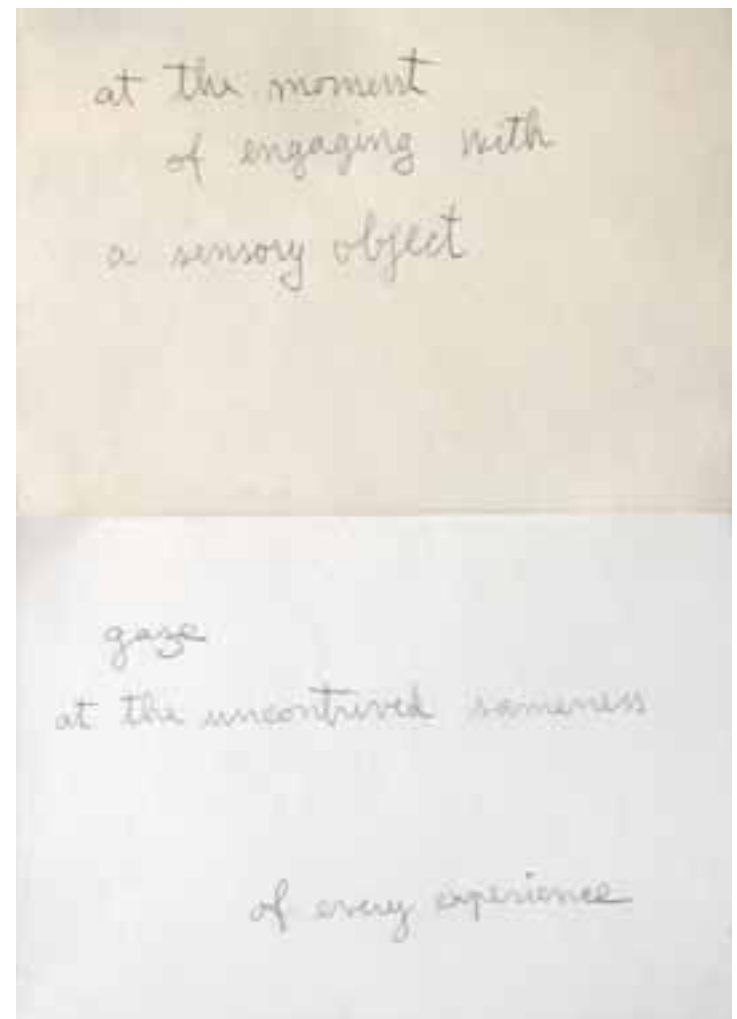 at the moment
of engaging with
a sensory object
gaze
at the uncontrived sameness
of every experience